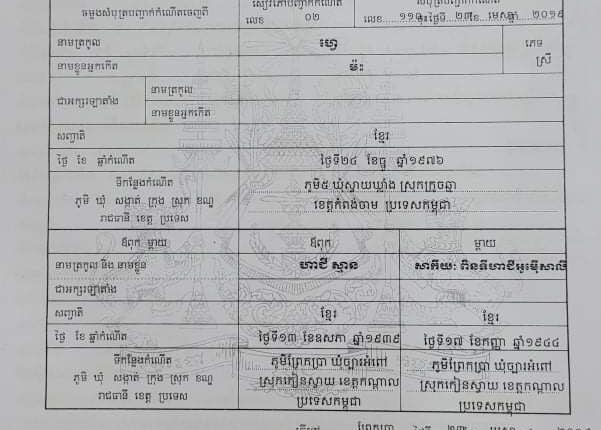 ចម្លងសំបុត្របញ្ជាក់កំណើតចេញពី
លេខ ០២
លេខ ១១០ ចុះថ្ងៃទី ២៣ ខែ មេសា ឆ្នាំ ២០១៩
នាមត្រកូល
ភេទ
ស្រី
នាមខ្លួនអ្នកកើត
ម៉ះ
ជាអក្សរឡាតាំង
នាមត្រកូល
នាមខ្លួនអ្នកកើត
សញ្ជាតិ ខ្មែរ
ថ្ងៃ ខែ ឆ្នាំកំណើត ថ្ងៃទី២៤ ខែធ្នូ ឆ្នាំ១៩៧៦
ទីកន្លែងកំណើត ភូមិ៥ ឃុំស្វាយឃ្លាំង ស្រុកក្រូចឆ្មា
ភូមិ ឃុំ សង្កាត់ ក្រុង ស្រុក ខណ្ឌ ខេត្តកំពង់ចាម ប្រទេសកម្ពុជា
រាជធានី ខេត្ត ប្រទេស
ឪពុក ម្តាយ ឪពុក ម្តាយ
នាមត្រកូល និង នាមខ្លួន ហាជី ស្មាន
ជាអក្សរឡាតាំង
សញ្ជាតិ ខ្មែរ ខ្មែរ
ថ្ងៃ ខែ ឆ្នាំកំណើត ថ្ងៃទី១៣ ខែឧសភា ឆ្នាំ១៩៣៩ ថ្ងៃទី១៧ ខែកញ្ញា ឆ្នាំ១៩៤៤
ទីកន្លែងកំណើត ភូមិព្រែកប្រា ឃុំច្បារអំពៅ ភូមិព្រែកប្រា ឃុំច្បារអំពៅ
ភូមិ ឃុំ សង្កាត់ ក្រុង ស្រុក ខណ្ឌ ស្រុកកៀនស្វាយ ខេត្តកណ្តាល ស្រុកកៀនស្វាយ ខេត្តកណ្តាល
រាជធានី ខេត្ត ប្រទេស ប្រទេសកម្ពុជា ប្រទេសកម្ពុជា